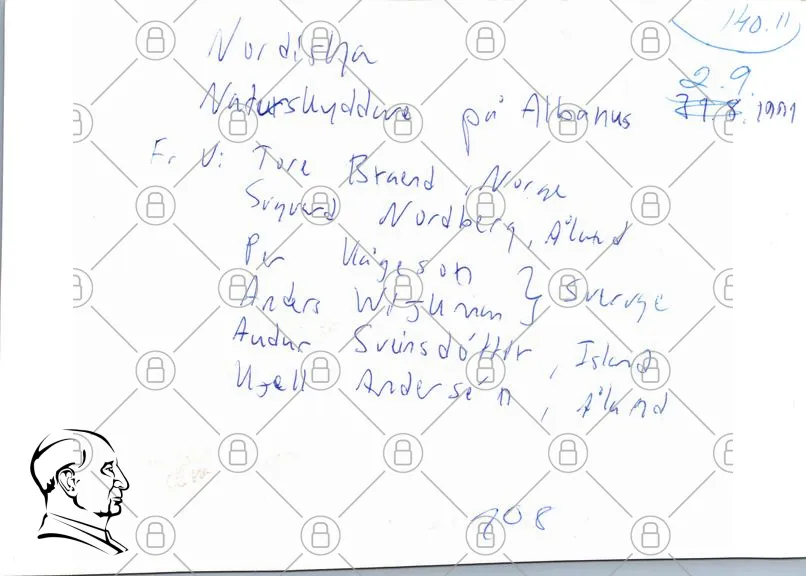 140.11
Nordiska
2.9.
Naturskyddare på Albanus 31.8.1991
Fr. V: Tore Braend, Norge
Sigurd Nordberg, Åland
Per Kågeson
Anders Wijkman } Sverige
Audur Sveinsdóttir, Island
Kjell Andersén, Åland
108